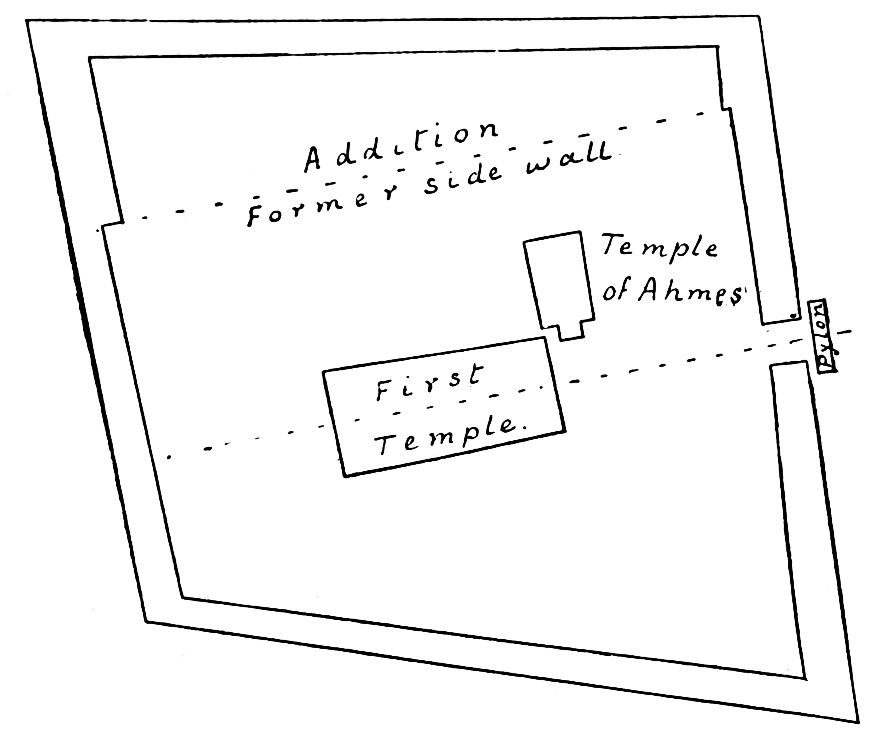 Addition
Former side wall
Temple
of Ahmes
Pylon
First
Temple.